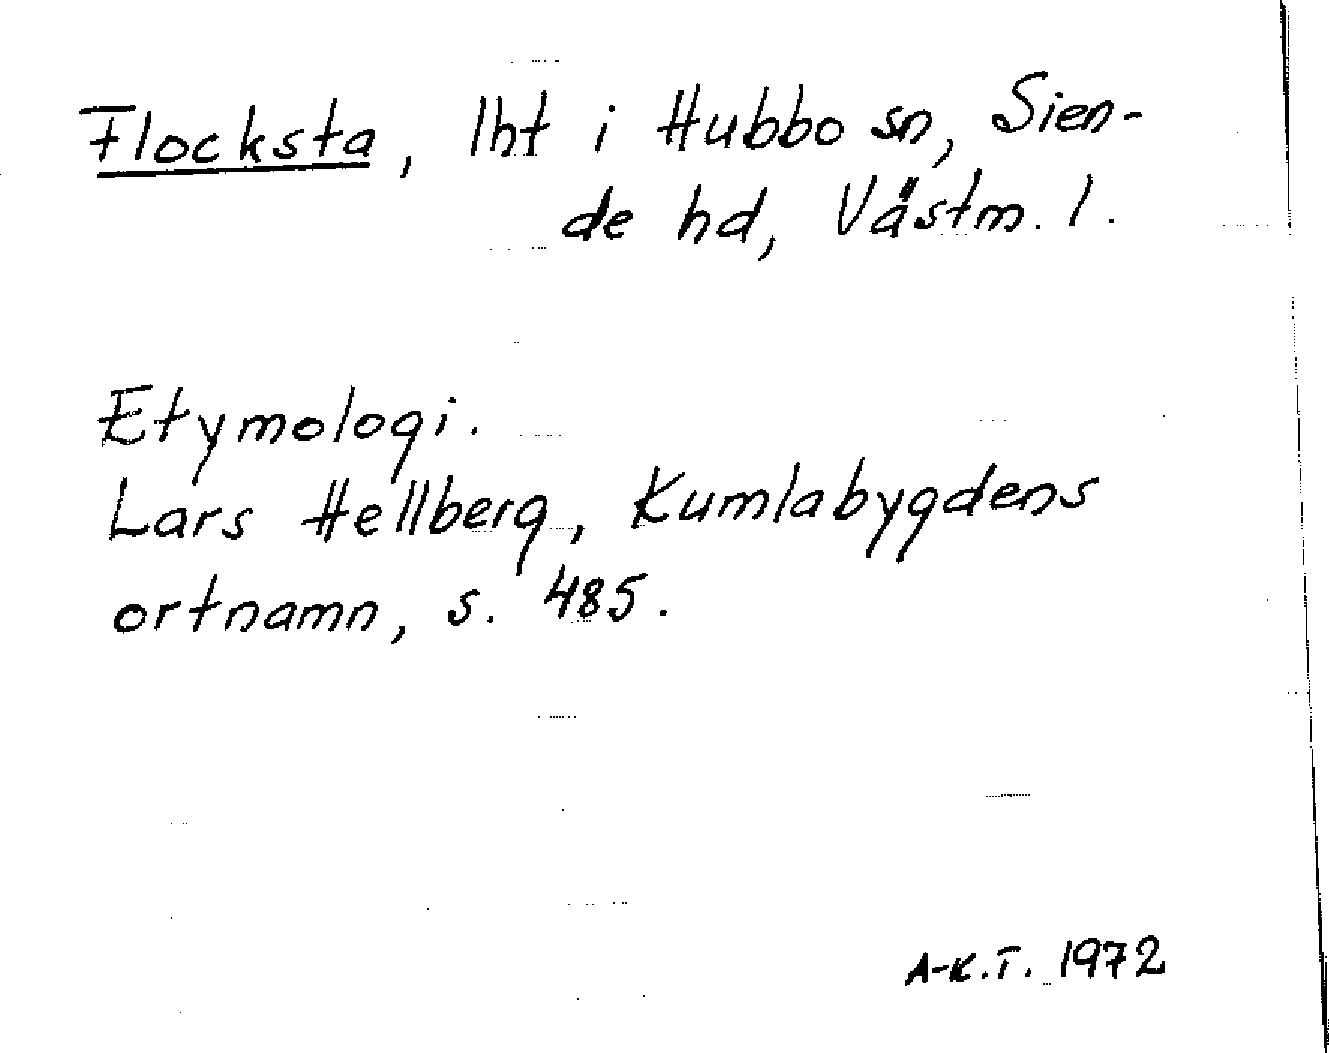 Flocksta, lht i Hubbo sn, Sien-
de hd, Västm. l.
Etymologi.
Lars Hellberg, Kumlabygdens
ortnamn, s. 485.
A-K.T. 1972